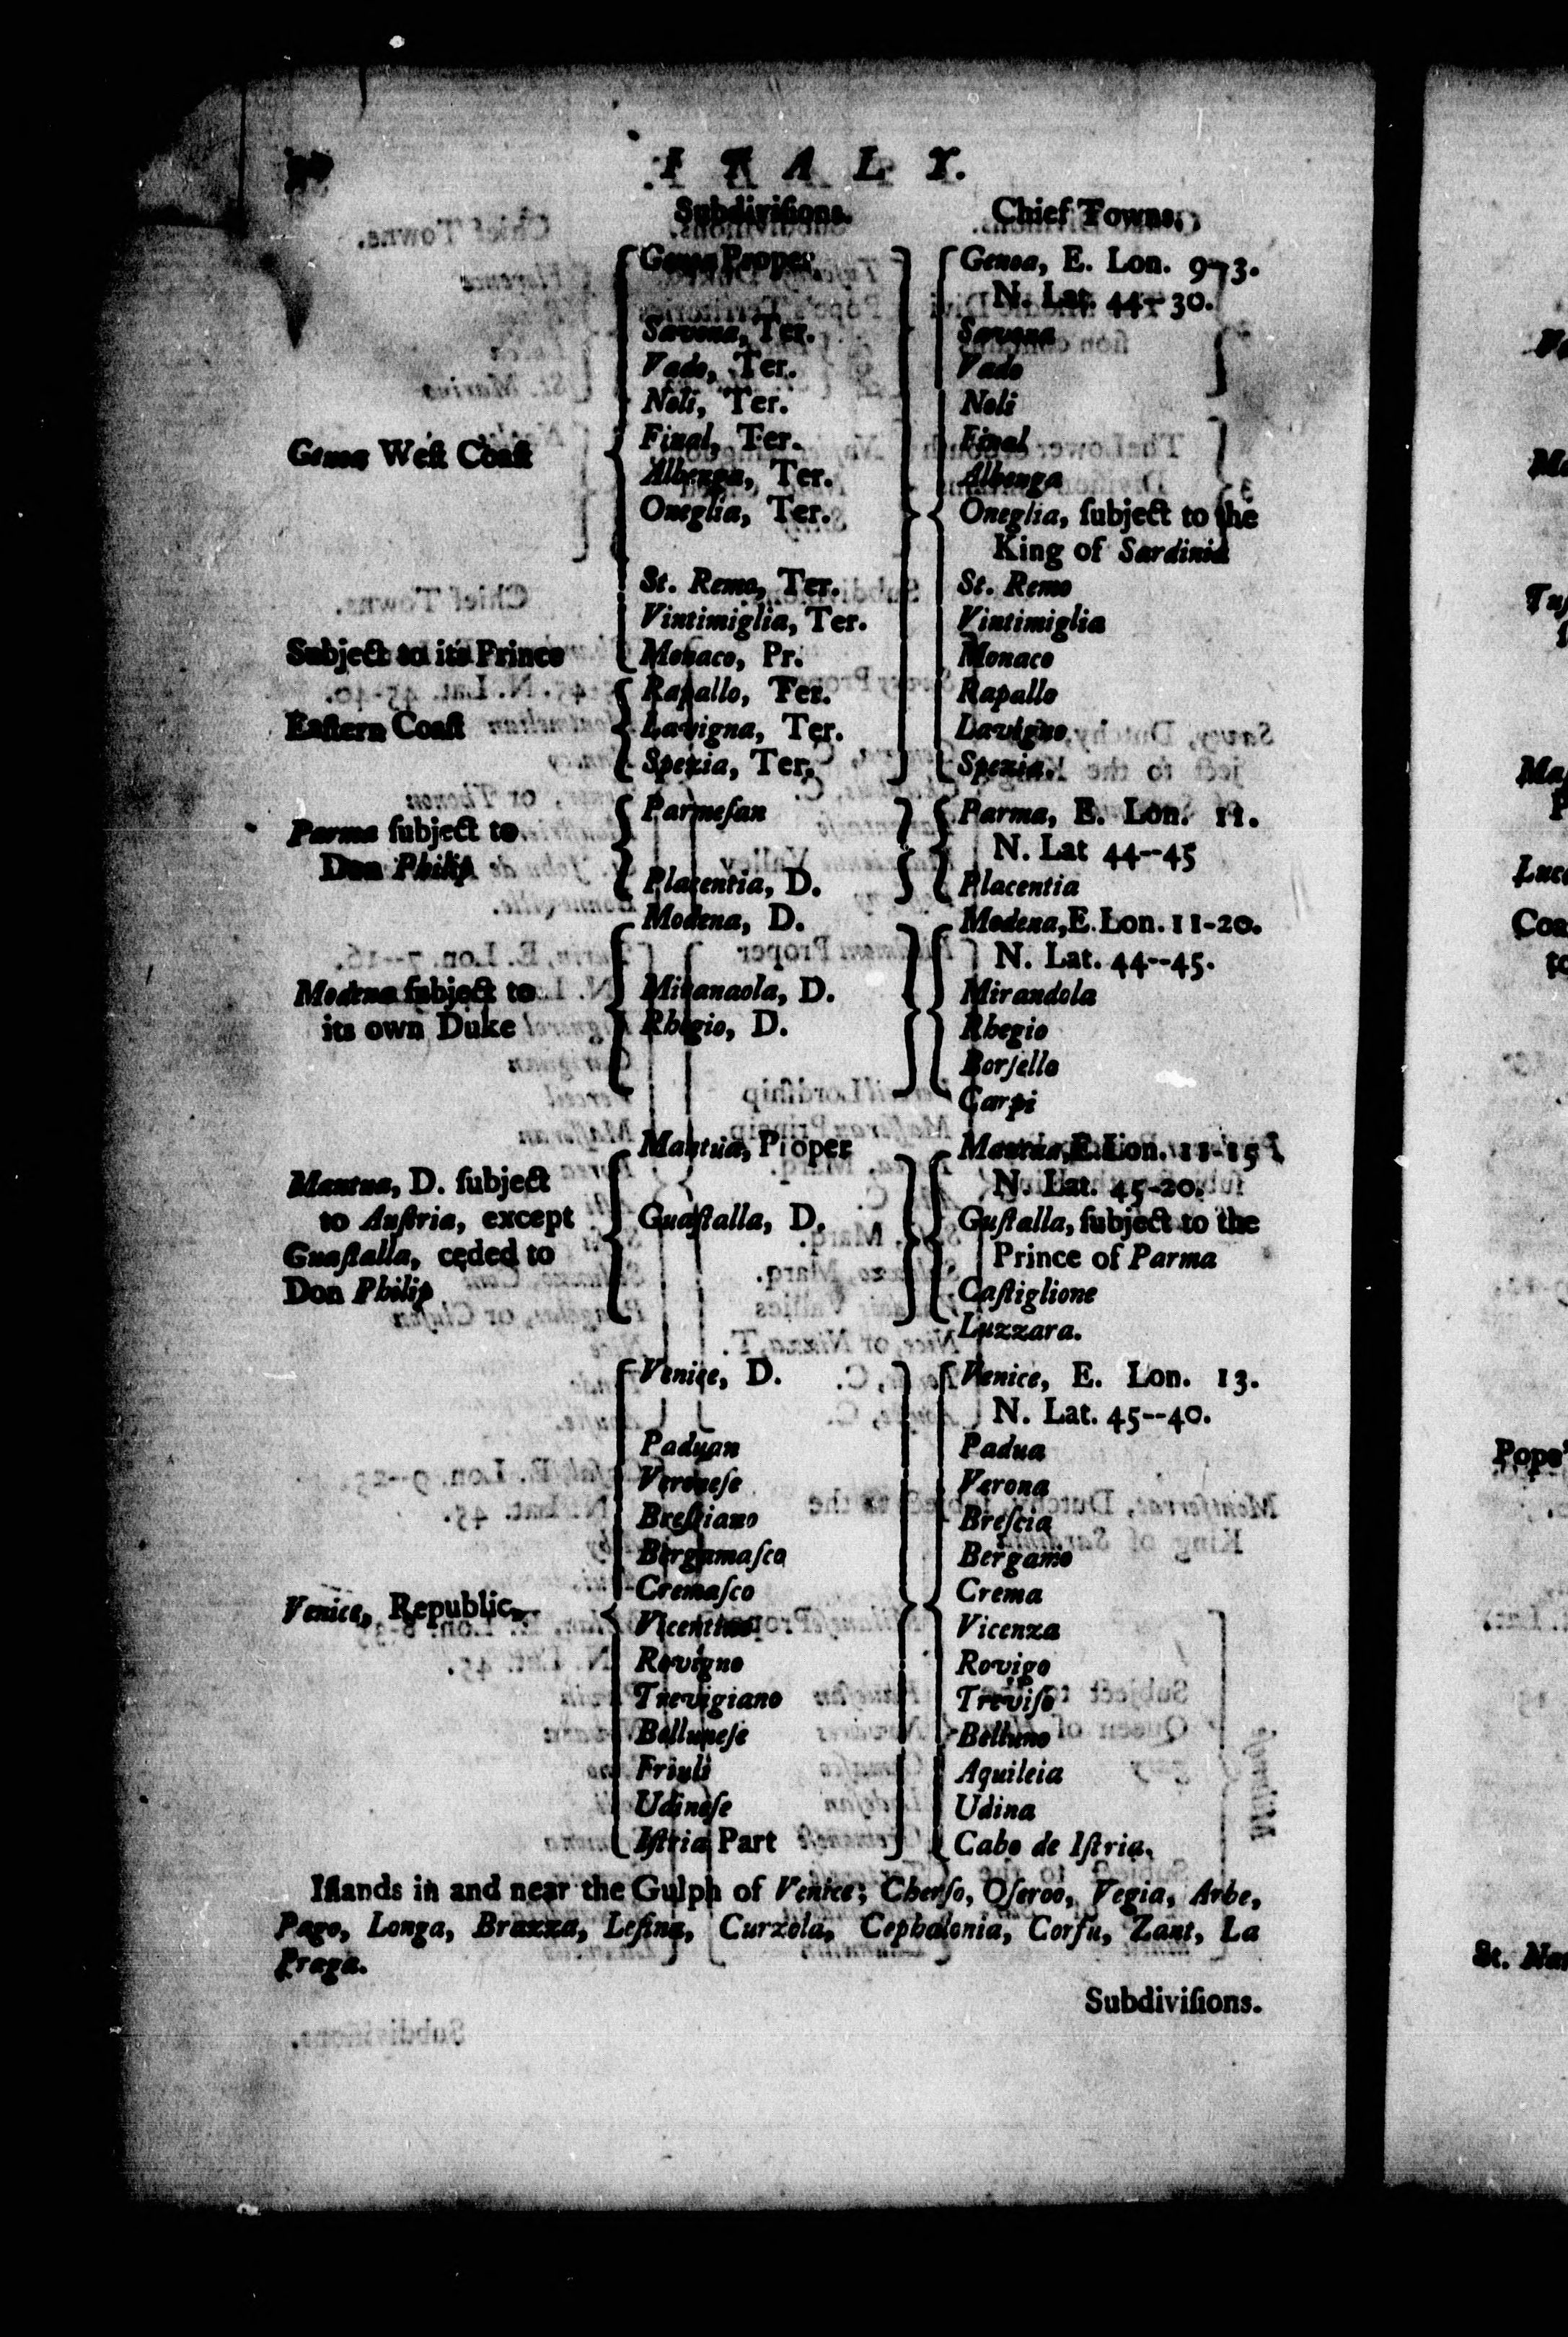 I T A L Y.
Subdiviſions. Chief Towns.
Genoa Proper Genoa, E. Lon. 9--3.
N. Lat. 44--30.
Savona, Ter. Savona
Vado, Ter. Vado
Noli, Ter. Noli
Final, Ter. Final
Genoa Weſt Coaſt
Albenga, Ter. Albenga
Oneglia, Ter. Oneglia, ſubject to the
King of Sardinia
St. Remo, Ter. St. Remo
Vintimiglia, Ter. Vintimiglia
Subject to its Prince Monaco, Pr. Monaco
Rapallo, Ter. Rapallo
Eaſtern Coaſt Lavigna, Ter. Lavigna
Spezia, Ter. Spezia.
Parmeſan Parma, E. Lon. 11.
Parma ſubject to
Don Philip
N. Lat 44--45
Placentia, D. Placentia
Modena, D. Modena, E. Lon. 11-20.
N. Lat. 44--45.
Modena ſubject to
its own Duke
Miranaola, D. Mirandola
Rhegio, D. Rhegio
Borſello
Carpi
Mantua, Proper Mantua, E. Lon. 11-15
N. Lat. 45-20.
Mantua, D. ſubject
to Auſtria, except
Guaſtalla, ceded to
Don Philip
Guaſtalla, D. Guſtalla, ſubject to the
Prince of Parma
Caſtiglione
Luzzara.
Venice, D. Venice, E. Lon. 13.
N. Lat. 45--40.
Paduan Padua
Veroneſe Verona
Breſciano Breſcia
Bergamaſco Bergamo
Cremaſco Crema
Venice, Republic,
Vicentino Vicenza
Rovigno Rovigo
Trevigiano Treviſo
Belluneſe Belluno
Friuli Aquileia
Udineſe Udina
Iſtria Part Cabo de Iſtria.
Iſlands in and near the Gulph of Venice; Cherſo, Oſeroo, Vegia, Arbe,
Pago, Longa, Brazza, Leſina, Curzola, Cephalonia, Corfu, Zant, La
Praga.
Subdiviſions.